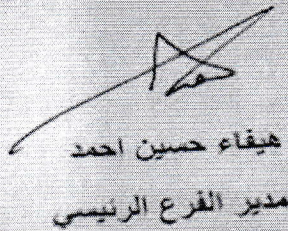 هيفاء حسين احمد
مدير الفرع الرئيسي